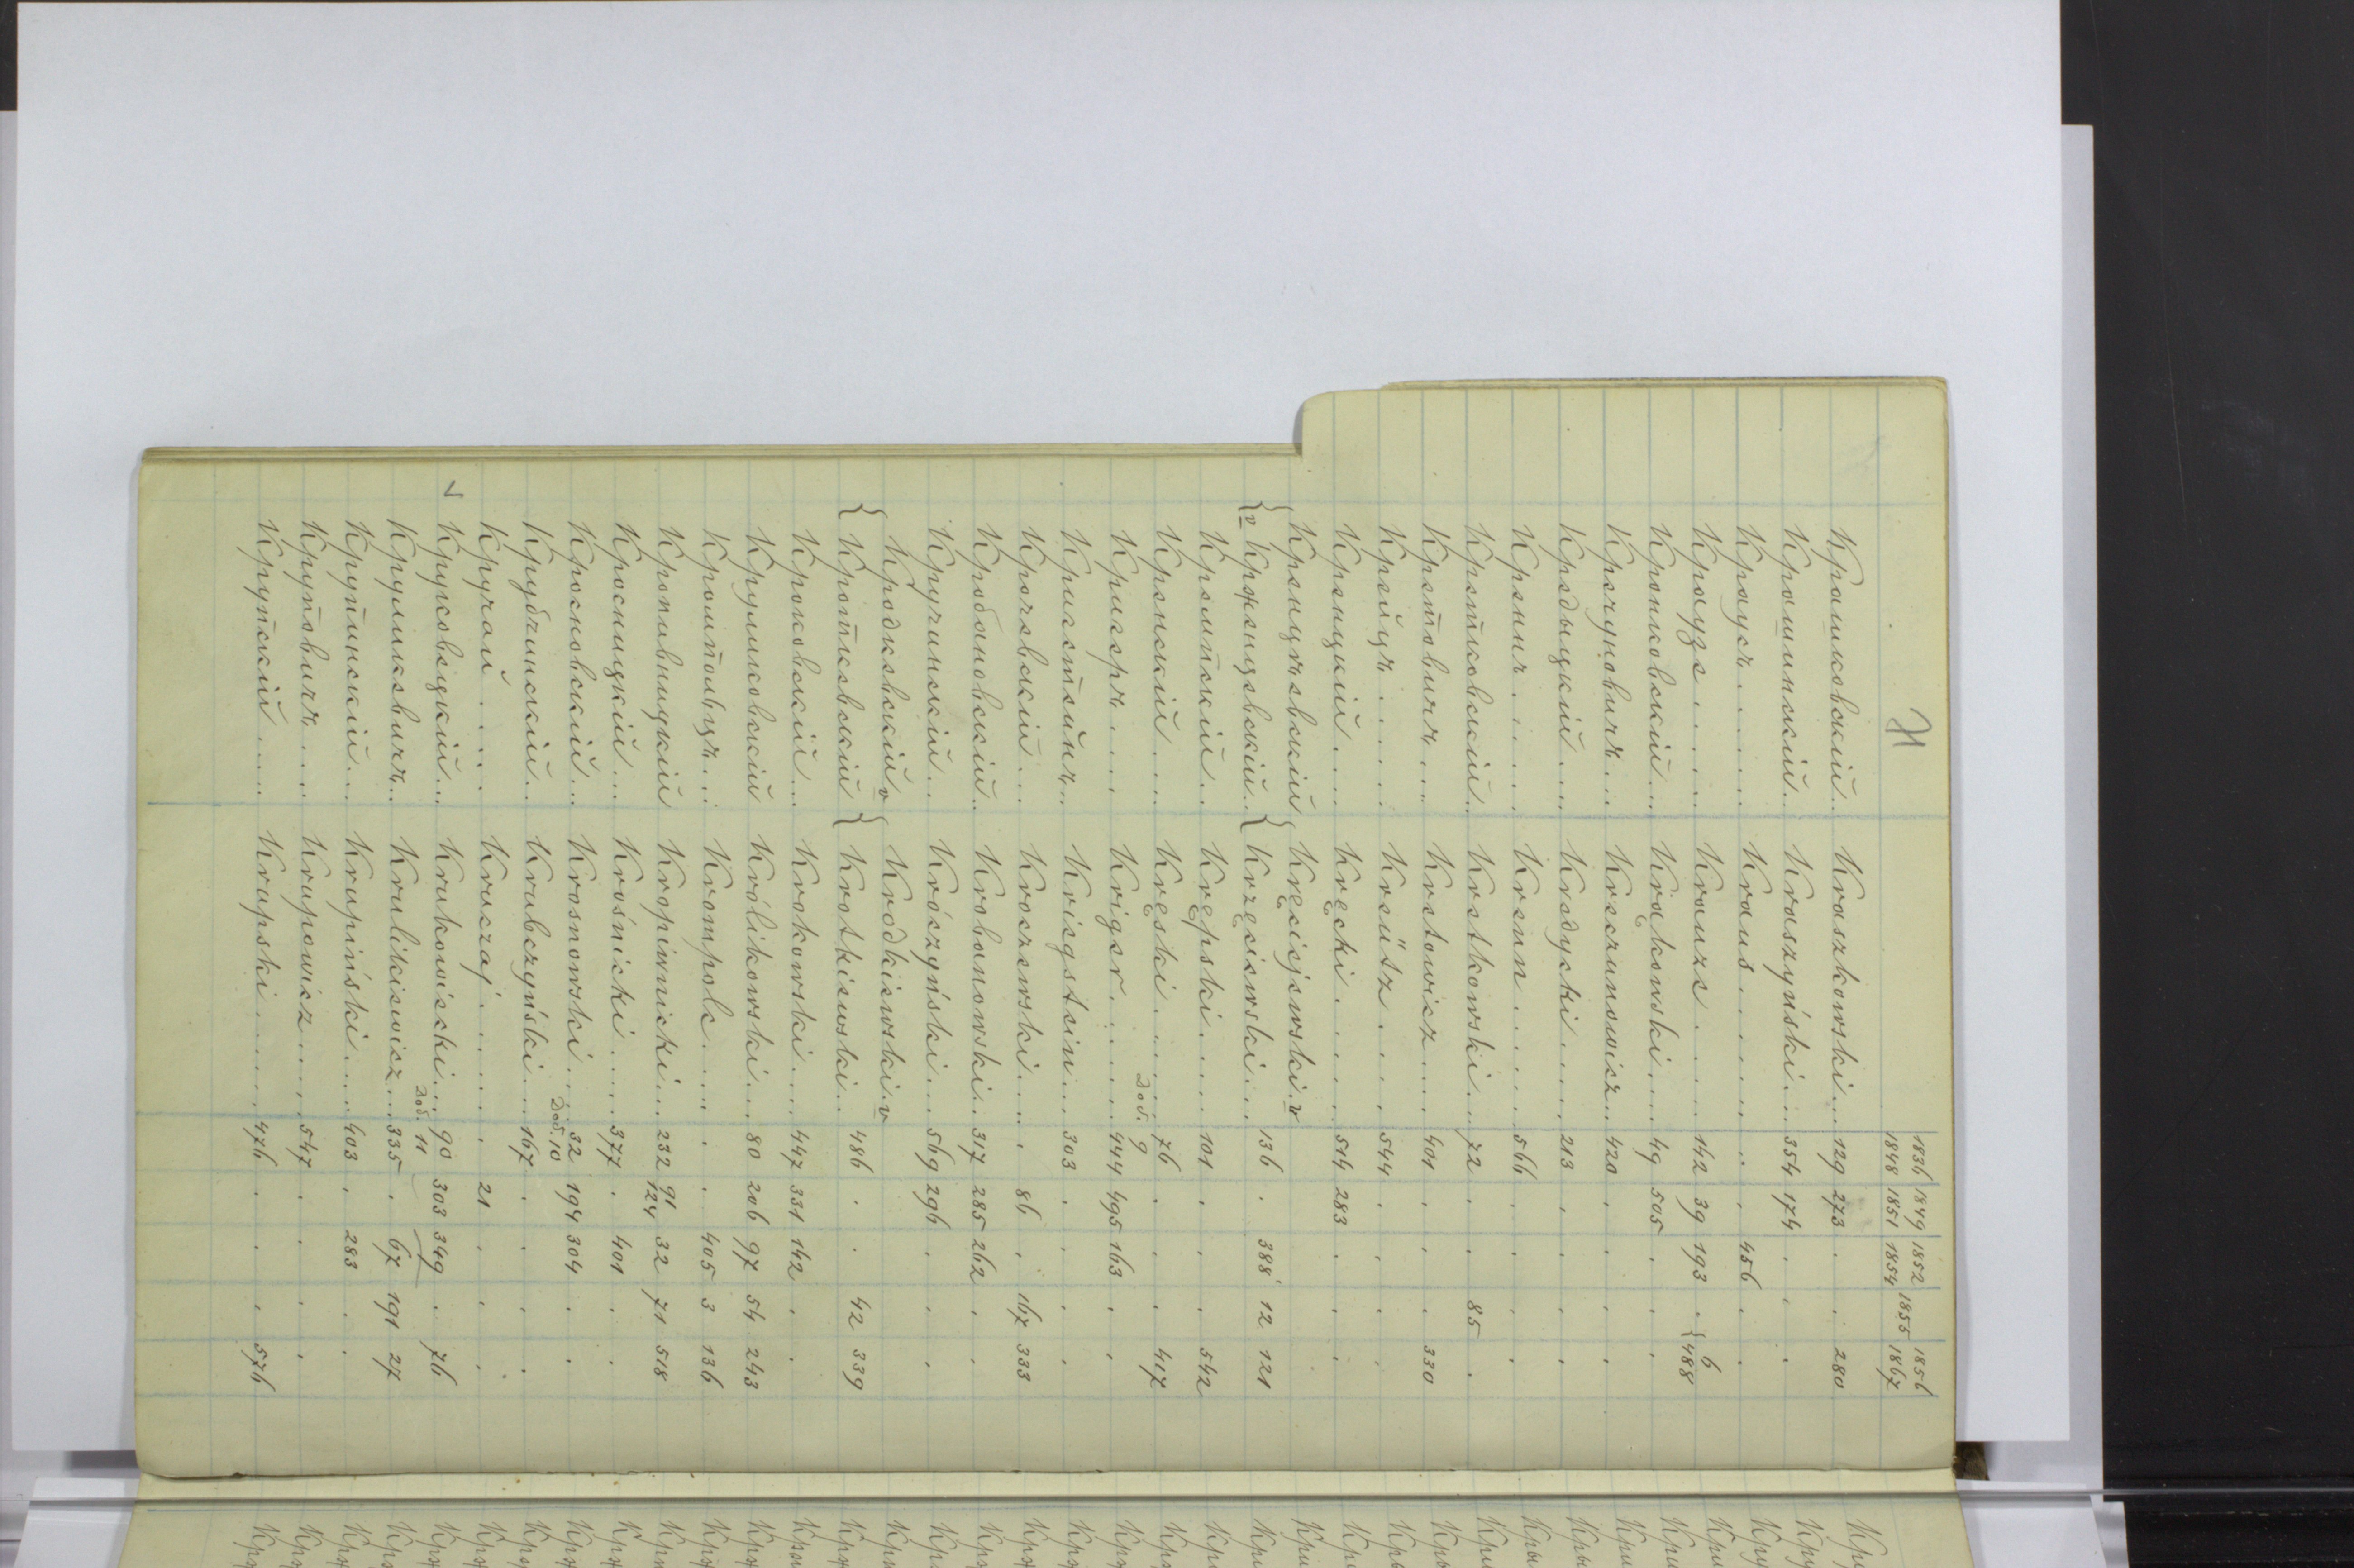 К
1836 1849 1852 1855 1856
1848 1851 1854 1867
Крашковскій... Kraszkowski... 129 273 . . 280
Крашинскій... Kraszyński... 354 174 . . .
Краусъ...... Kraus........ . . 456 . .
Краузе...... Krauze..... 142 39 193 . { 6
488
Кронковскій... Krąkowski.... 49 505 . . .
Кречуновичъ... Kreczunowicz... 420 . . . .
Кредыцкій.... Kredycki..... 213 . . . .
Кренъ...... Kren....... 566 . . . .
Кретковскій.. Kretkowski... 72 . . 85 .
Кретовичъ... Kretowicz.... 401 . . . 330
Крейцъ..... Kreütz..... 544 . . . .
Кренцкій.... Kręcki...... 514 283 . . .
{ Кренцѣевскій Kręciejewski v
v Крженцевскій.. { Krzęciewski... 136 . 388 12 121
Кремпскій.. Krępski..... 101 . . . 542
Кренскій.... Kręski...... 76 . . . 417
Дод. 9
Кригеръ.... Kriger...... 444 495 163 . .
Кригстейнъ.. Kriegstein... 303 . . . .
Крочевскій... Kroczewski.... . 86 . 167 333
Кробановскій.. Krobanowski.. 317 285 262 . .
Кручинскій... Króczyński... 569 296 . . .
Кродкевскій v Krodkiewski v
{ Кроткевскій { Krotkiewski.. 486 . . 42 339
Кроковскій... Krokowski.... 447 331 142 . .
Круликовскій Królikowski... 80 206 97 54 243
Кромпольцъ... Krompolc.... . . 405 3 136
Кропивницкій Kropiwnicki... 232 91 32 71 518
124
Кросницкій... Krośnicki..... 377 . 401 . .
Кросновскій... Krosnowski... 32 194 304 . .
Дод. 10
Крубчинскій.. Krubczyński... 167 . . . .
Кручай..... Kruczaj....... . 21 . . .
v Круковецкій... Krukowiecki... 90 303 349 . 76
Дод. 11
Круликевичъ.. Krulikiewicz... 335 . 67 191 27
Крупинскій... Krupiński.... 403 . 283 . .
Круповичъ.... Krupowicz.... 547 . . . .
Крупскій..... Krupski...... 476 . . . 576